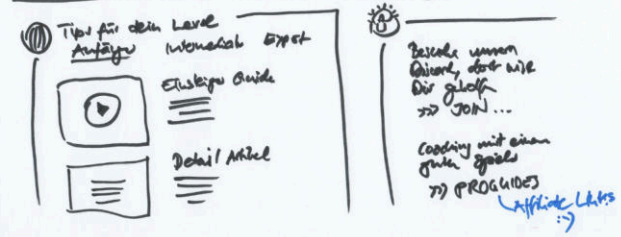 Tips für dein Level
Anfänger Intermediate Expert
Einsteiger Guide
Detail Artikel
Besuche unsern
Discord, dort wird
Dir geholfen
>>> JOIN...
Coaching mit einem
guten Spieler
>>> PROGUIDES
Affiliate Links
:-)